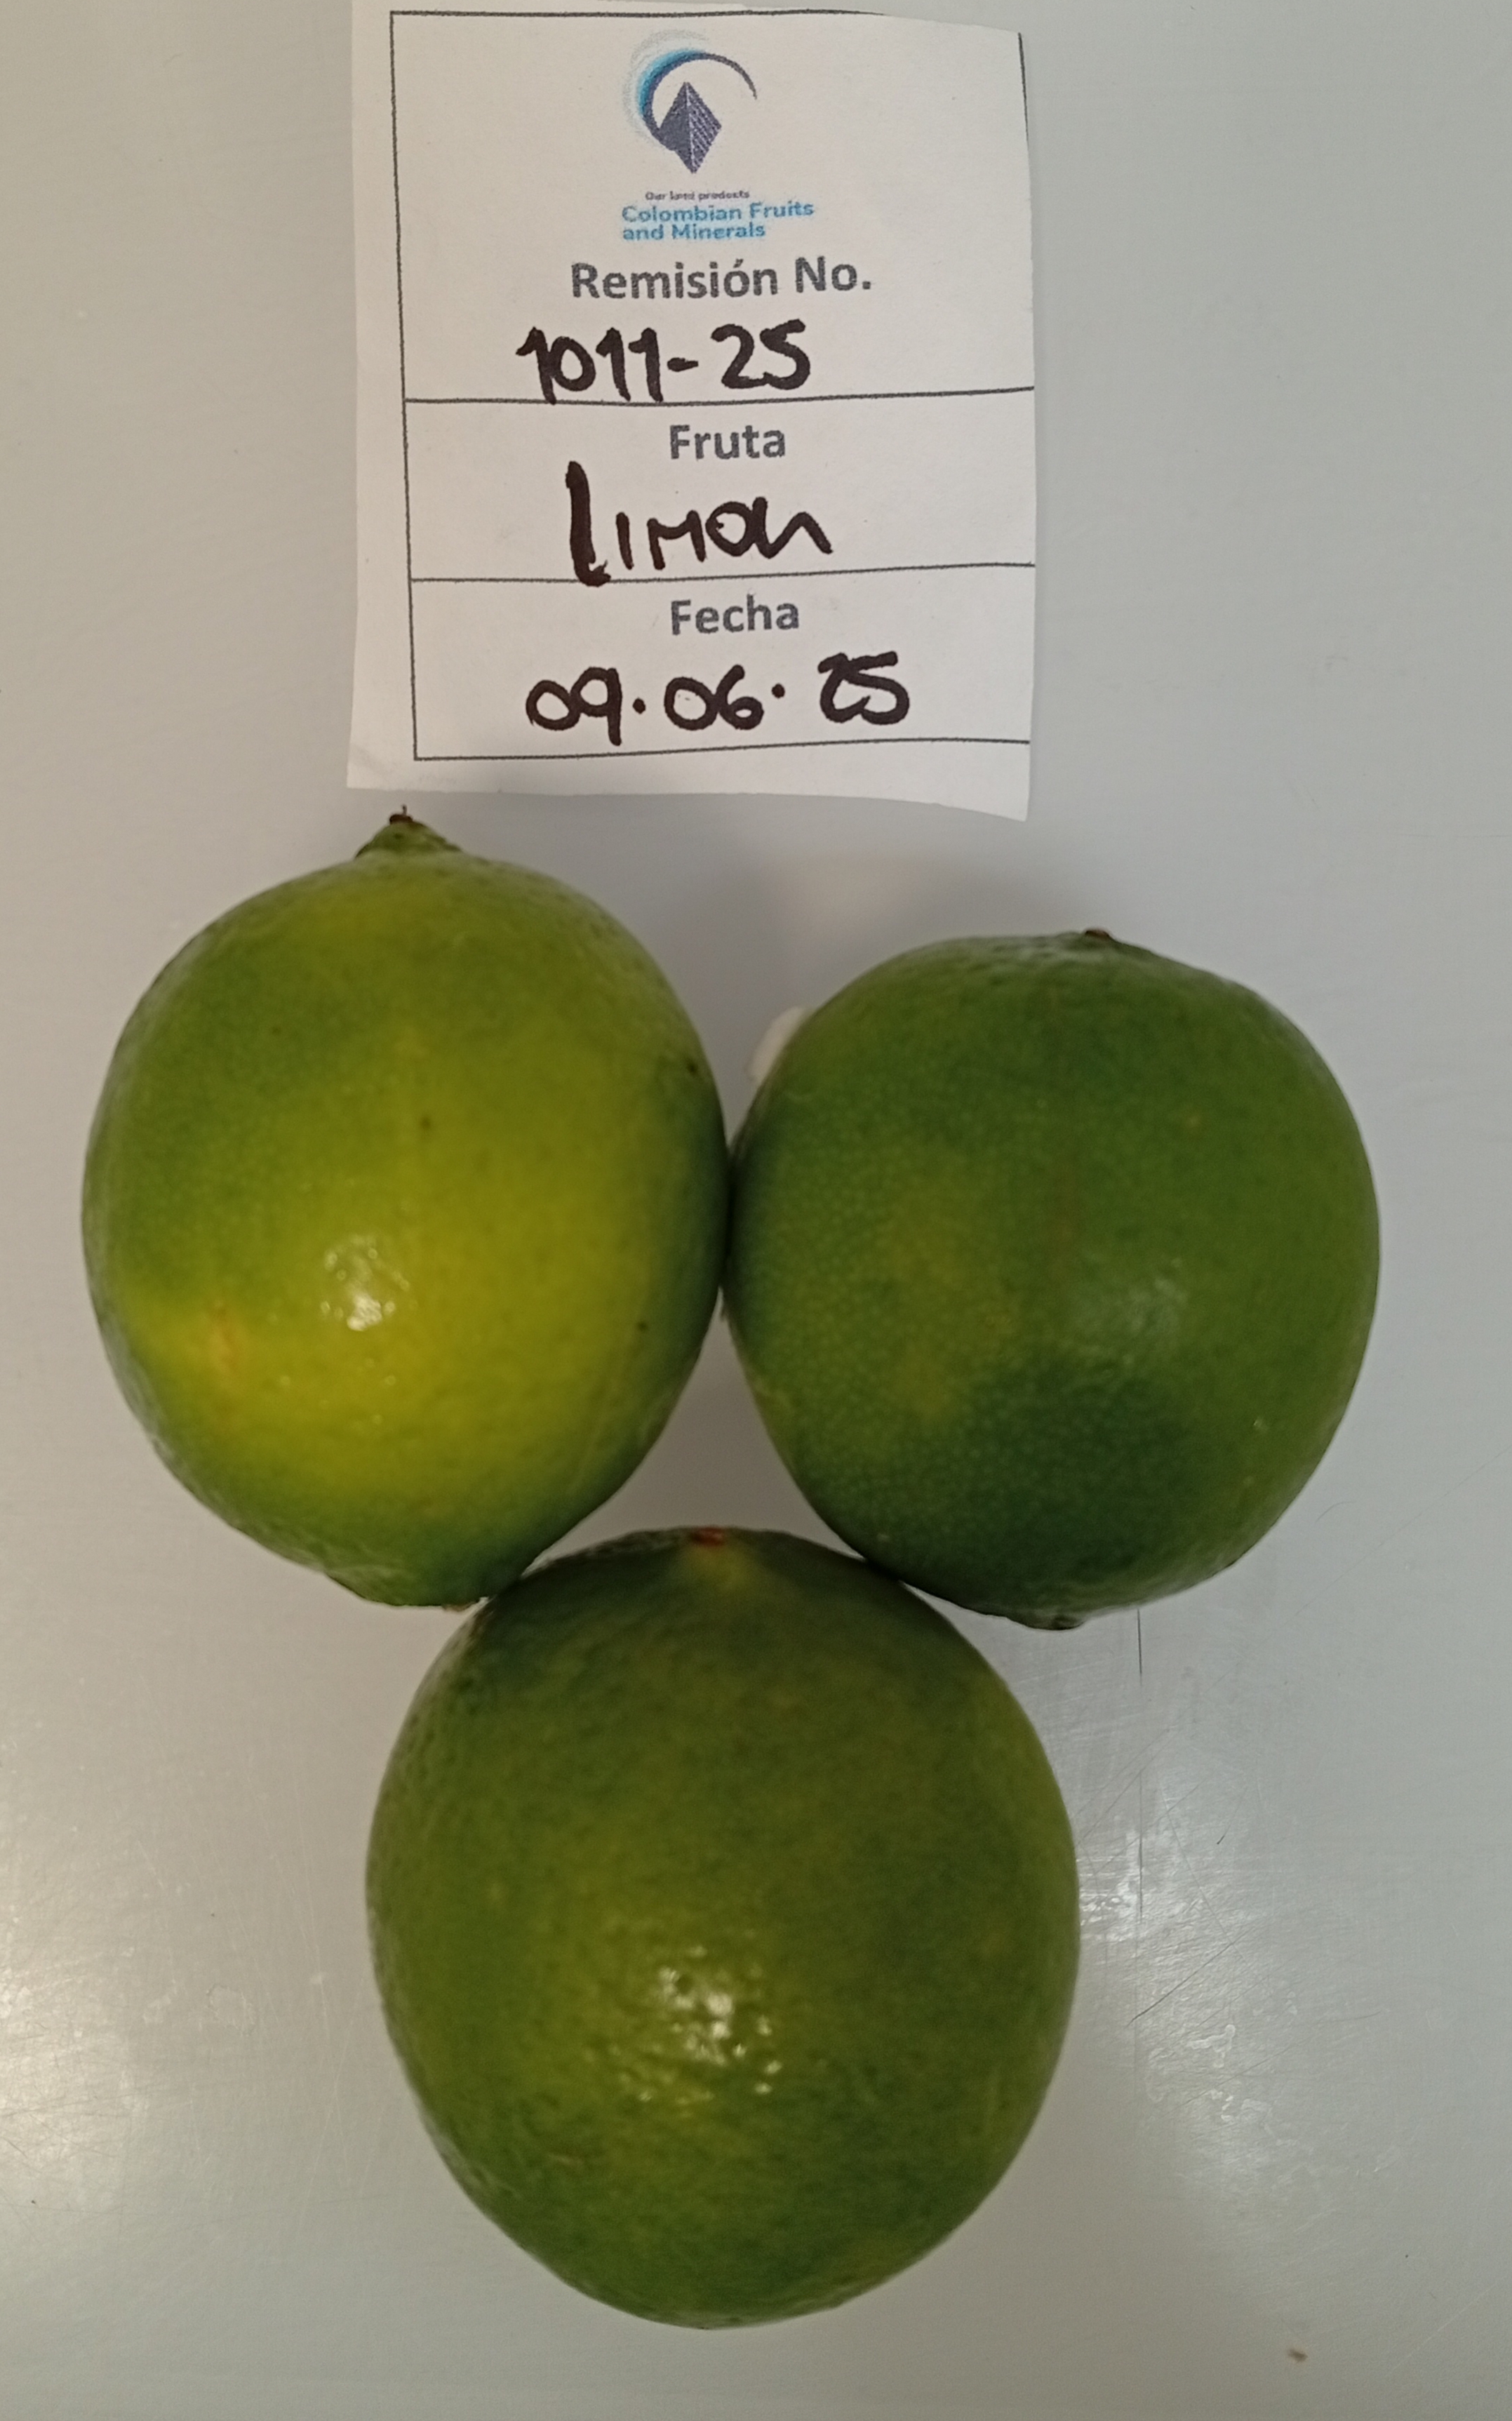 Our land products
Colombian Fruits
and Minerals
Remisión No.
1011-25
Fruta
Limon
Fecha
09.06.25